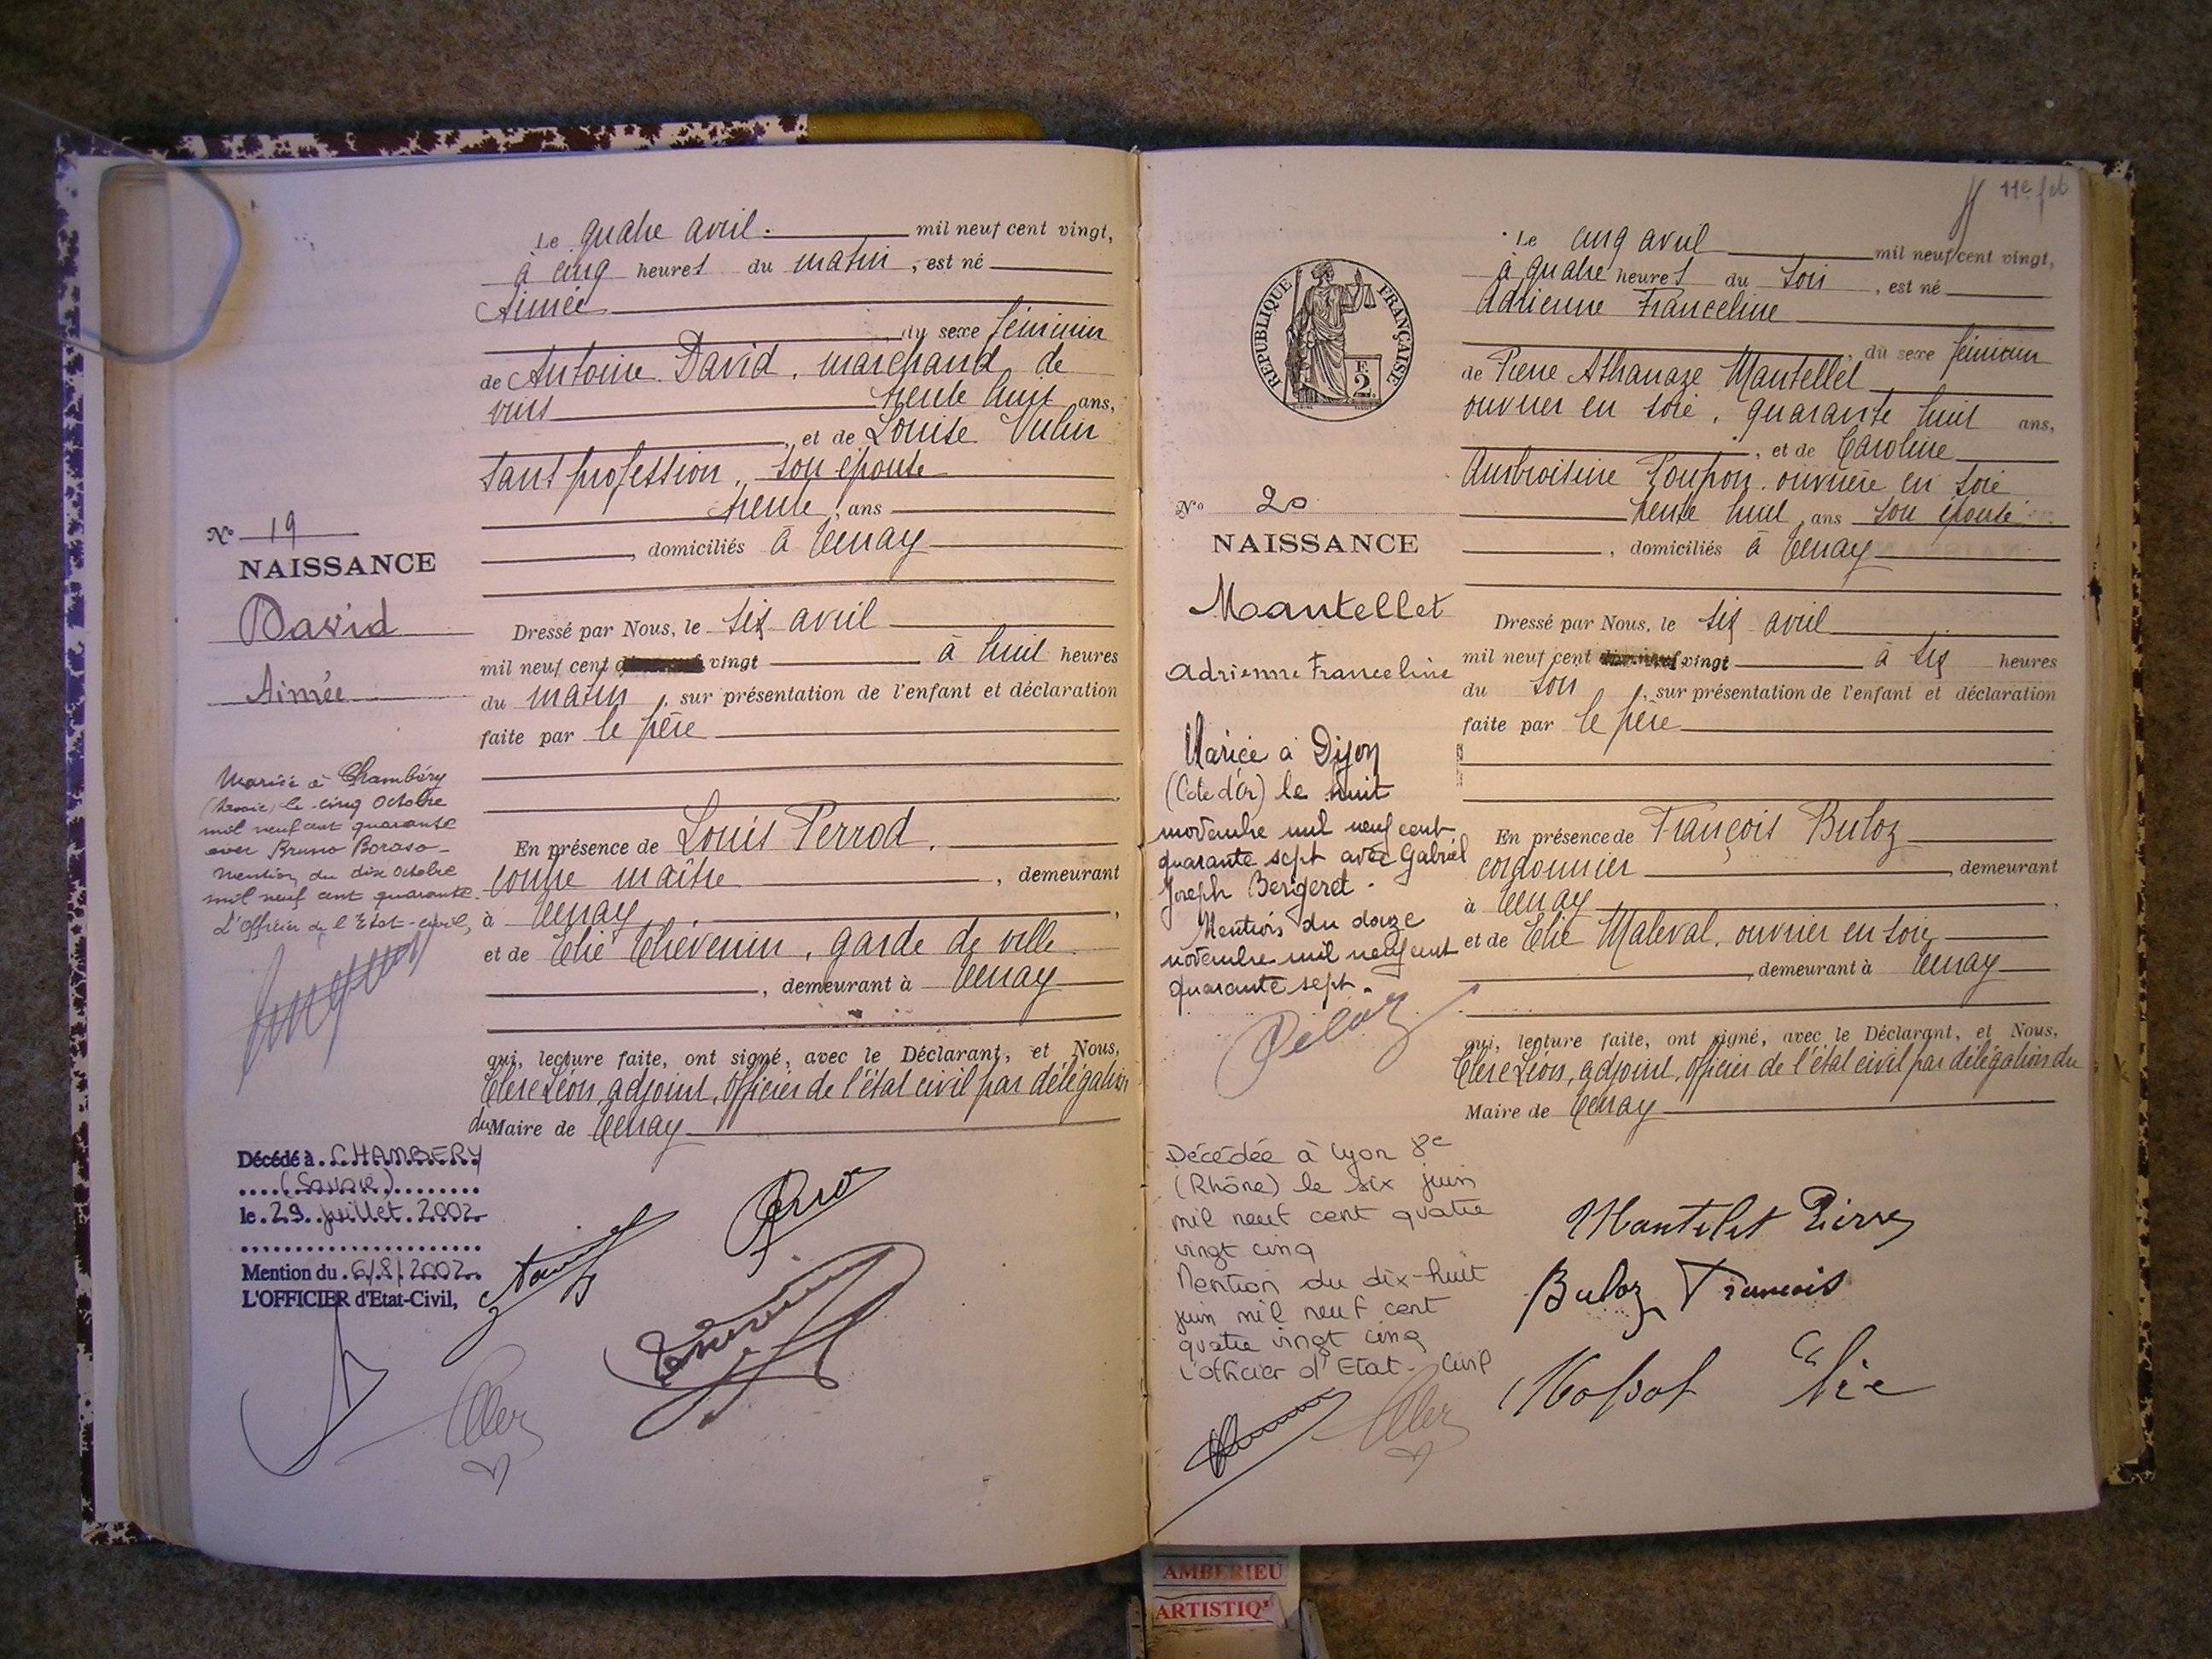 Le quatre avril. mil neuf cent vingt,
à cinq heures du matin, est né
Aimée
du sexe féminin
de Antoine David, marchand de
vins trente huit ans,
et de Louise Vulin
sans profession, son épouse
trente, ans
, domiciliés à Tenay
N° 19
NAISSANCE
David
Aimée
Dressé par Nous, le six avril
mil neuf cent vingt à huit heures
du matin, sur présentation de l'enfant et déclaration
faite par le père
Mariée à Chambéry
(Savoie) le cinq Octobre
mil neuf cent quarante
avec Bruno Boraso -
Mention du dix Octobre
mil neuf cent quarante.
L'Officier de l'Etat-civil,
En présence de Louis Perrod,
contre maître, demeurant
à Tenay,
et de Elie Thévenin, garde de ville
, demeurant à Tenay
qui, lecture faite, ont signé, avec le Déclarant, et Nous,
Clerc Léon, adjoint, officier de l'état civil par délégation
du Maire de Tenay
Décédé à CHAMBERY
(Savoie)
le 29 juillet 2002
Mention du 6/8/2002
L'OFFICIER d'Etat-Civil,
11e fet
Le cinq avril mil neuf cent vingt,
à quatre heures du soir, est né
Adrienne Franceline
du sexe féminin
de Pierre Athanaze Mantellet
ouvrier en soie, quarante huit ans,
, et de Caroline
Ambroisine Poupon, ouvrière en soie
trente huit, ans son épouse
, domiciliés à Tenay
REPUBLIQUE FRANÇAISE
F.
2.
N° 20
NAISSANCE
Mantellet
Adrienne Franceline
Dressé par Nous, le six avril
mil neuf cent vingt à six heures
du soir, sur présentation de l'enfant et déclaration
faite par le père
Mariée à Dijon
(Côte d'Or) le huit
novembre mil neuf cent
quarante sept avec Gabriel
Joseph Bergeret -
Mention du douze
novembre mil neuf cent
quarante sept.
En présence de François Buloz
cordonnier, demeurant
à Tenay
et de Elie Maleval, ouvrier en soie
, demeurant à Tenay
qui, lecture faite, ont signé, avec le Déclarant, et Nous,
Clerc Léon, adjoint, officier de l'état civil par délégation du
Maire de Tenay
Décédée à Lyon 8e
(Rhône) le six juin
mil neuf cent quatre
vingt cinq
Mention du dix-huit
juin mil neuf cent
quatre vingt cinq
L'officier d'Etat-Civil
Mantelet Pierre
Buloz Francois
Elie
AMBERIEU
ARTISTIQ